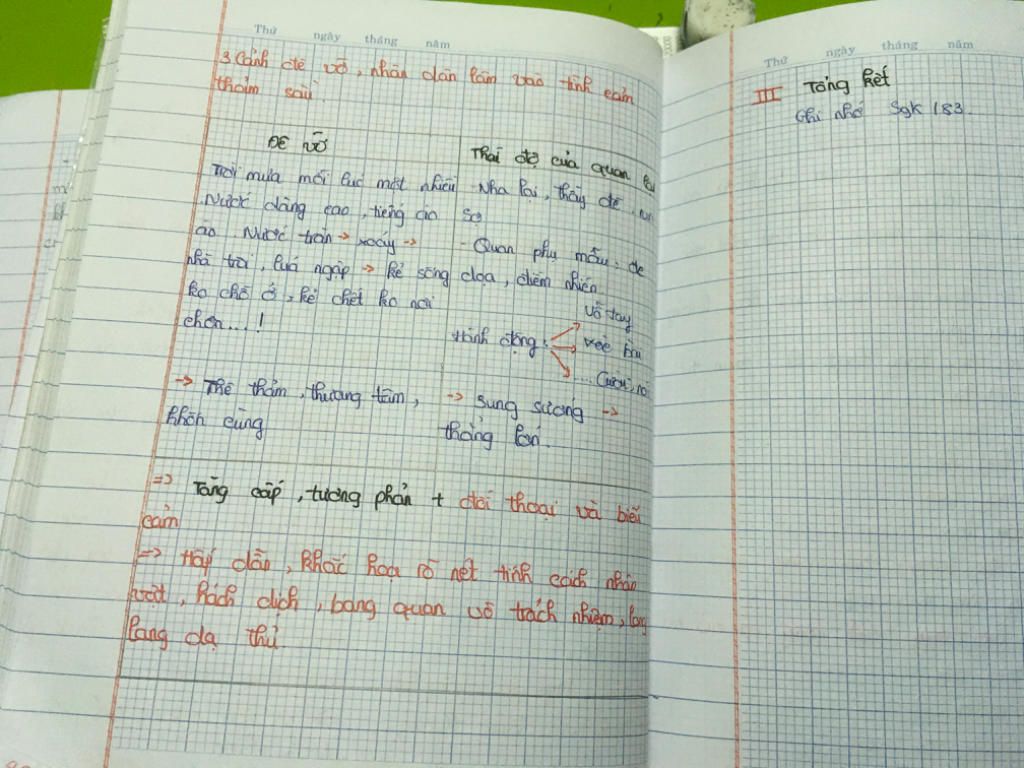 Thứ ngày tháng năm
3 Cảnh đê vỡ, nhân dân lâm vào tình cảm
thảm sầu.
Đê vỡ
Thái độ của quan lại
Trời mưa mỗi lúc một nhiều
Nước dâng cao, tiếng ào
ào. Nước tràn → xoáy →
nhà trôi, lúa ngập → kẻ sống
ko chỗ ở, kẻ chết ko nơi
chôn...!
- Nha lại, thầy đề, run
sợ
- Quan phụ mẫu: đe
dọa, điềm nhiên
Hành động:
vỗ tay
... Cười, nói
→ Thê thảm, thương tâm,
khốn cùng
→ sung sướng →
thắng lớn.
=> Tăng cấp, tương phản + đối thoại và biểu
cảm
=> Hấp dẫn, khắc họa rõ nét tính cách nhân
vật, hách dịch, bang quan vô trách nhiệm, lòng
lang dạ thú.
Thứ ngày tháng năm
III Tổng kết
Ghi nhớ Sgk 183.